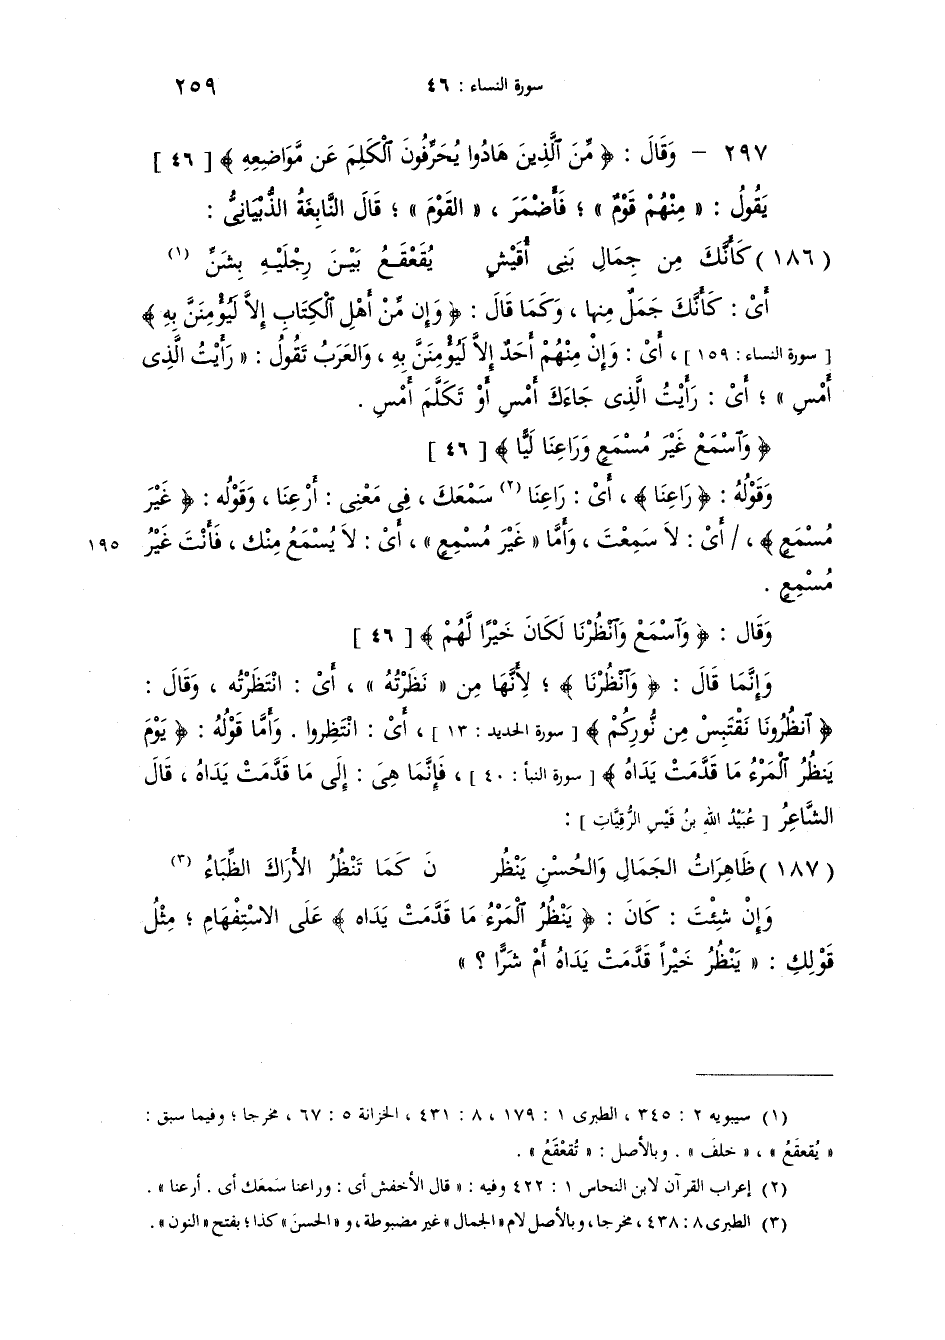 سورة النساء : ٤٦ ٢٥٩
٢٩٧ – وَقَالَ : ﴿ مِّنَ ٱلَّذِينَ هَادُوا يُحَرِّفُونَ ٱلْكَلِمَ عَن مَّوَاضِعِهِ ﴾ [ ٤٦ ]
يَقُولُ : « مِنْهُمْ قَوْمٌ » ؛ فَأَضْمَرَ ، « القَوْمَ » ؛ قَالَ النَّابِغَةُ الذُّبْيَانِىُّ :
( ١٨٦ ) كَأَنَّكَ مِن جِمَالِ بَنِى أُقَيْشٍ يُقَعْقَعُ بَيْنَ رِجْلَيْهِ بِشَنِّ (١)
أَىْ : كَأَنَّكَ جَمَلٌ مِنها ، وَكَمَا قَالَ : ﴿ وَإِن مِّنْ أَهْلِ الْكِتَابِ إِلاَّ لَيُؤْمِنَنَّ بِهِ ﴾
[ سورة النساء : ١٥٩ ] ، أَىْ : وَإِنْ مِنْهُمْ أَحَدٌ إِلاَّ لَيُؤْمِنَنَّ بِهِ ، وَالعَرَبُ تَقُولُ : « رَأَيْتُ الَّذِى
أَمْسِ » ؛ أَىْ : رَأَيْتُ الَّذِى جَاءَكَ أَمْسِ أَوْ تَكَلَّمَ أَمْسِ .
﴿ وَٱسْمَعْ غَيْرَ مُسْمَعٍ وَرَاعِنَا لَيًّا ﴾ [ ٤٦ ]
وَقَوْلُهُ : ﴿ رَاعِنَا ﴾ ، أَىْ : رَاعِنَا (٢) سَمْعَكَ ، فِى مَعْنِى : أَرْعِنَا ، وَقَوْلُه : ﴿ غَيْرَ
مُسْمَعٍ ﴾ ، / أَىْ : لاَ سَمِعْتَ ، وَأَمَّا « غَيْرَ مُسْمِعٍ » ، أَىْ : لاَ يُسْمَعُ مِنْك ، فَأَنْتَ غَيْرُ ١٩٥
مُسْمِعٍ .
وَقَال : ﴿ وَٱسْمَعْ وَٱنْظُرْنَا لَكَانَ خَيْرًا لَّهُمْ ﴾ [ ٤٦ ]
وَإِنَّمَا قَالَ : ﴿ وَٱنْظُرْنَا ﴾ ؛ لِأَنَّهَا مِن « نَظَرْتُهُ » ، أَىْ : انْتَظَرْتُه ، وَقَالَ :
﴿ ٱنظُرُونَا نَقْتَبِسْ مِن نُّورِكُمْ ﴾ [ سورة الحديد : ١٣ ] ، أَىْ : انْتَظِروا . وَأَمَّا قَوْلُهُ : ﴿ يَوْمَ
يَنظُرُ ٱلْمَرْءُ مَا قَدَّمَتْ يَدَاهُ ﴾ [ سورة النبأ : ٤٠ ] ، فَإِنَّمَا هِىَ : إِلَى مَا قَدَّمَتْ يَدَاهُ ، قَالَ
الشَّاعِرُ [ عُبَيْدُ اللهِ بنُ قَيْسِ الرُّقِيَّاتِ ] :
( ١٨٧ ) ظَاهِرَاتُ الجَمَالِ وَالحُسْنِ يَنْظُر نَ كَمَا تَنْظُرُ الأَرَاكَ الظِّبَاءُ (٣)
وَإِنْ شِئْتَ : كَانَ : ﴿ يَنْظُرُ ٱلْمَرْءُ مَا قَدَّمَتْ يَدَاه ﴾ عَلَى الاسْتِفْهَامِ ؛ مِثْلُ
قَوْلِكِ : « يَنْظُرُ خَيْراً قَدَّمَتْ يَدَاهُ أَمْ شَرًّا ؟ »
(١) سيبويه ٢ : ٣٤٥ ، الطبرى ١ : ١٧٩ ، ٨ : ٤٣١ ، الخزانة ٥ : ٦٧ ، مخرجا ؛ وفيما سبق :
« يُقعقَعُ » ، « خلفَ » . وبالأصل : « تُقعْقَعُ » .
(٢) إعراب القرآن لابن النحاس ١ : ٤٢٢ وفيه : « قال الأخفش أى : وراعنا سَمعَك أى . أرعنا » .
(٣) الطبرى ٨ : ٤٣٨ ، مخرجا ، وبالأصل لام « الجمال » غير مضبوطة ، و « الحسنَ » كذا ؛ بفتح « النون » .